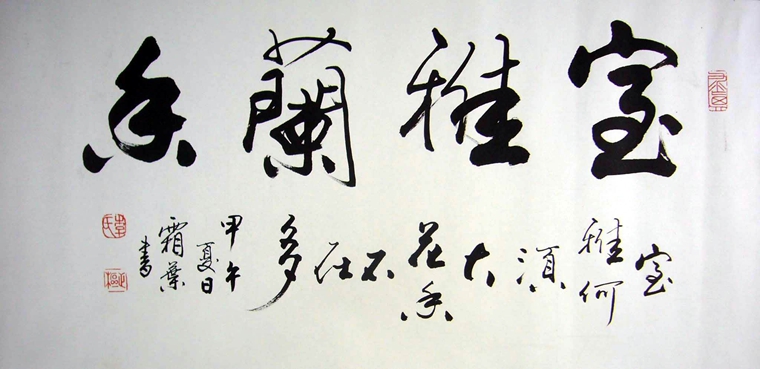 室雅蘭香
室雅何須大花香不在多
甲午
夏日
霜葉
書